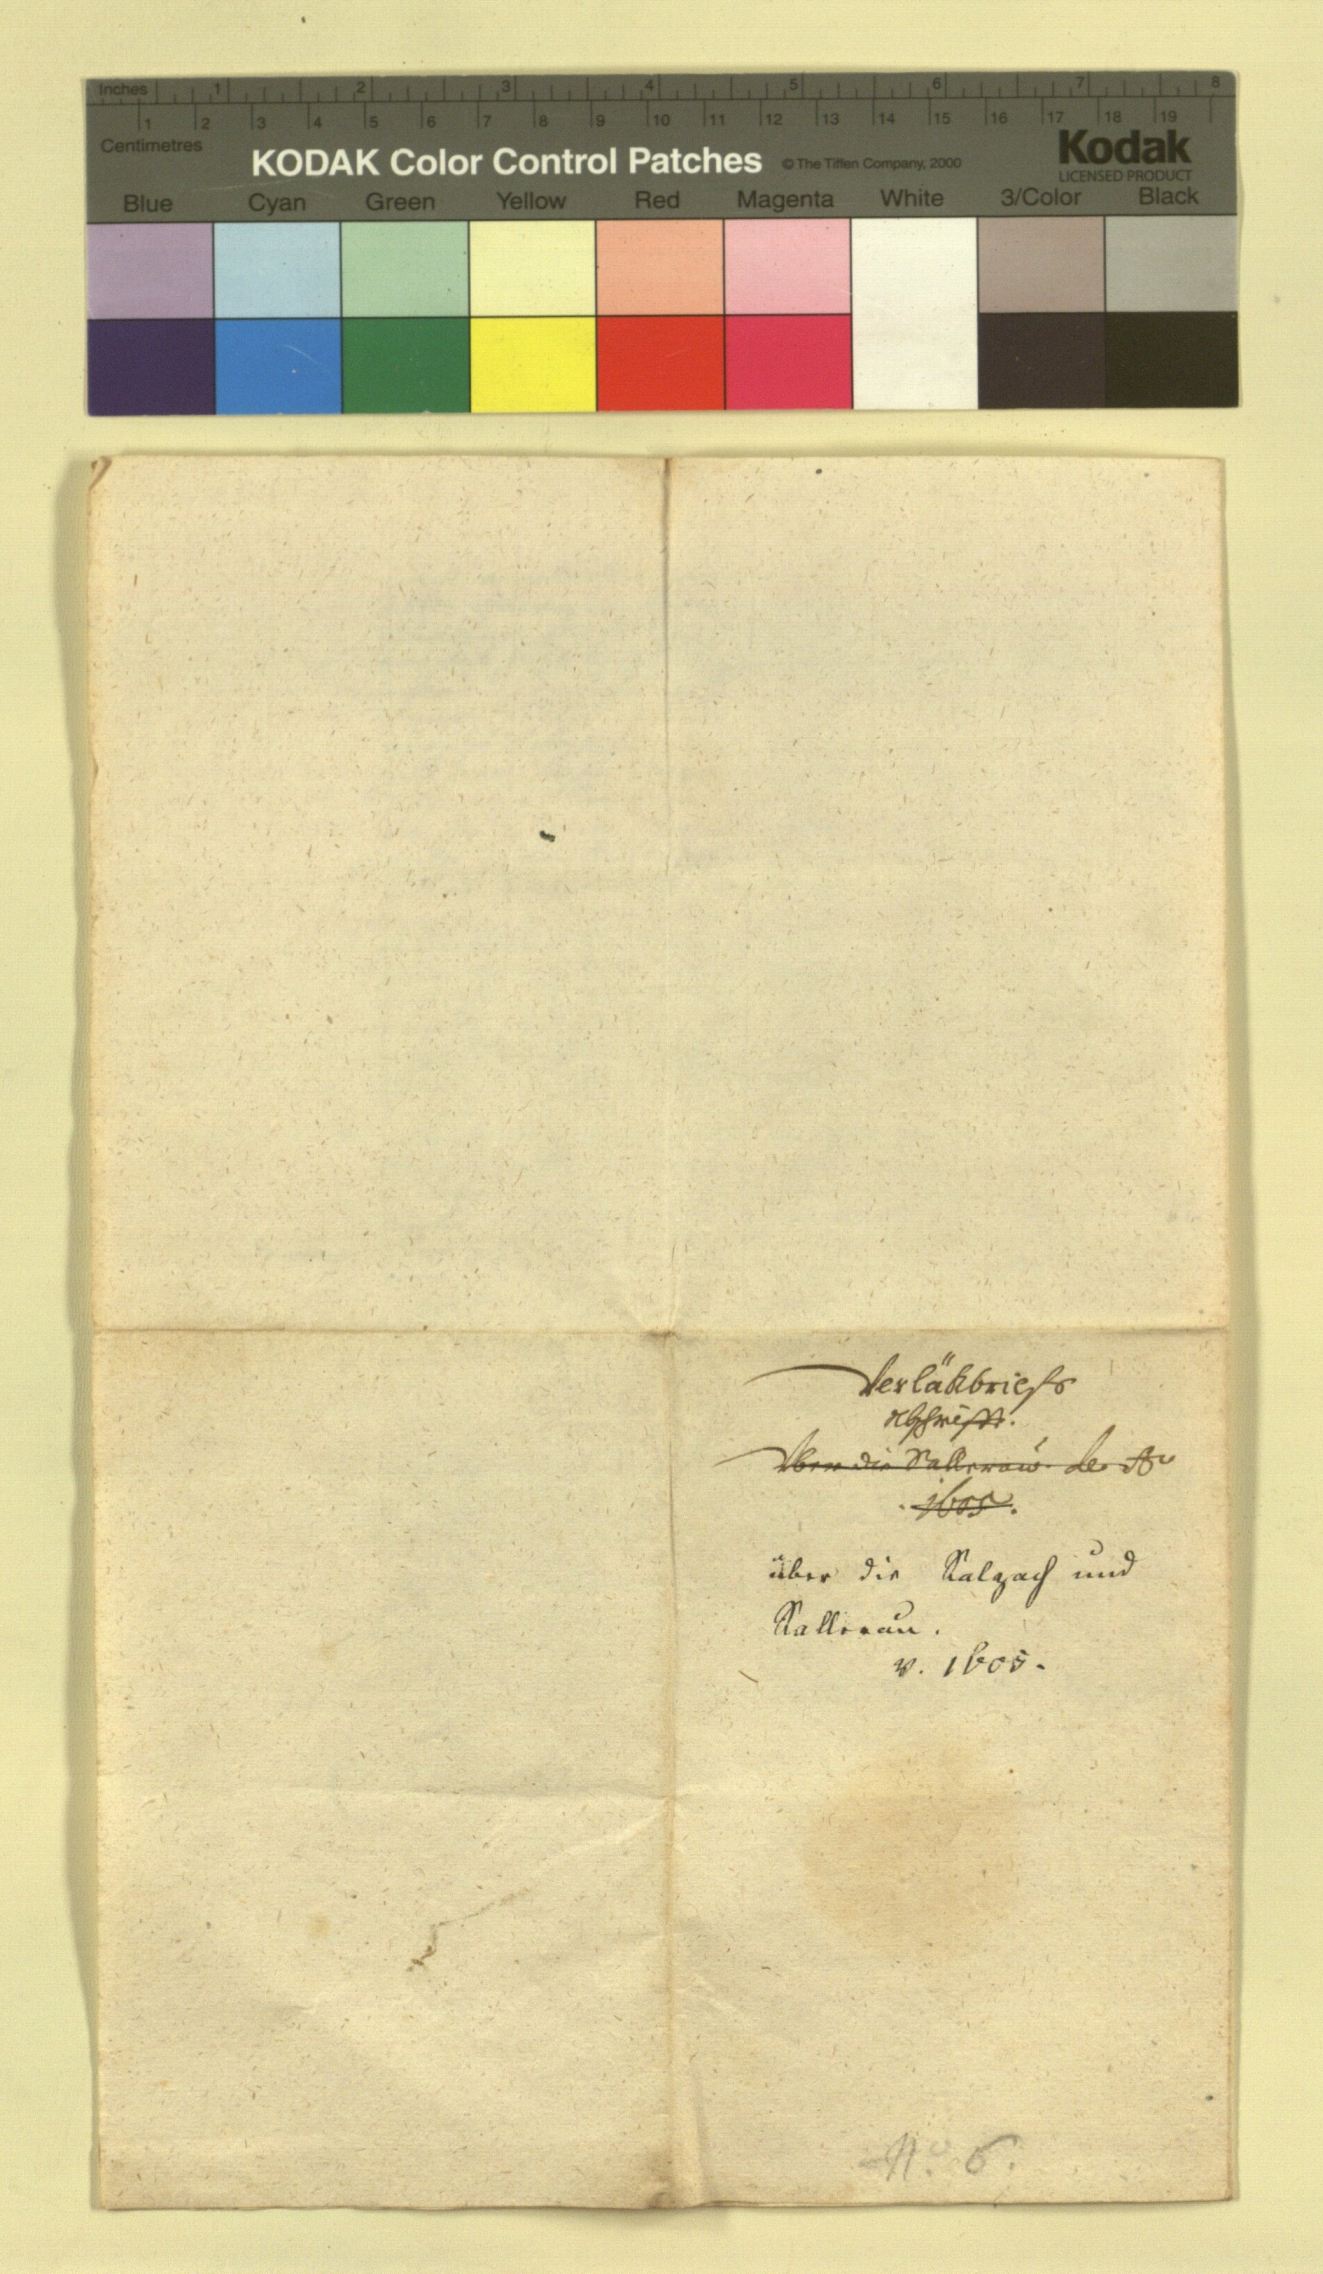 Inches 1 2 3 4 5 6 7 8
1 2 3 4 5 6 7 8 9 10 11 12 13 14 15 16 17 18 19
Centimetres
KODAK Color Control Patches © The Tiffen Company, 2000 Kodak
LICENSED PRODUCT
Blue Cyan Green Yellow Red Magenta White 3/Color Black
Abschrifft.
Über die Sallerau de Ao
1605.
über die Salzach und
Sallerau.
v. 1605.
No. 6.